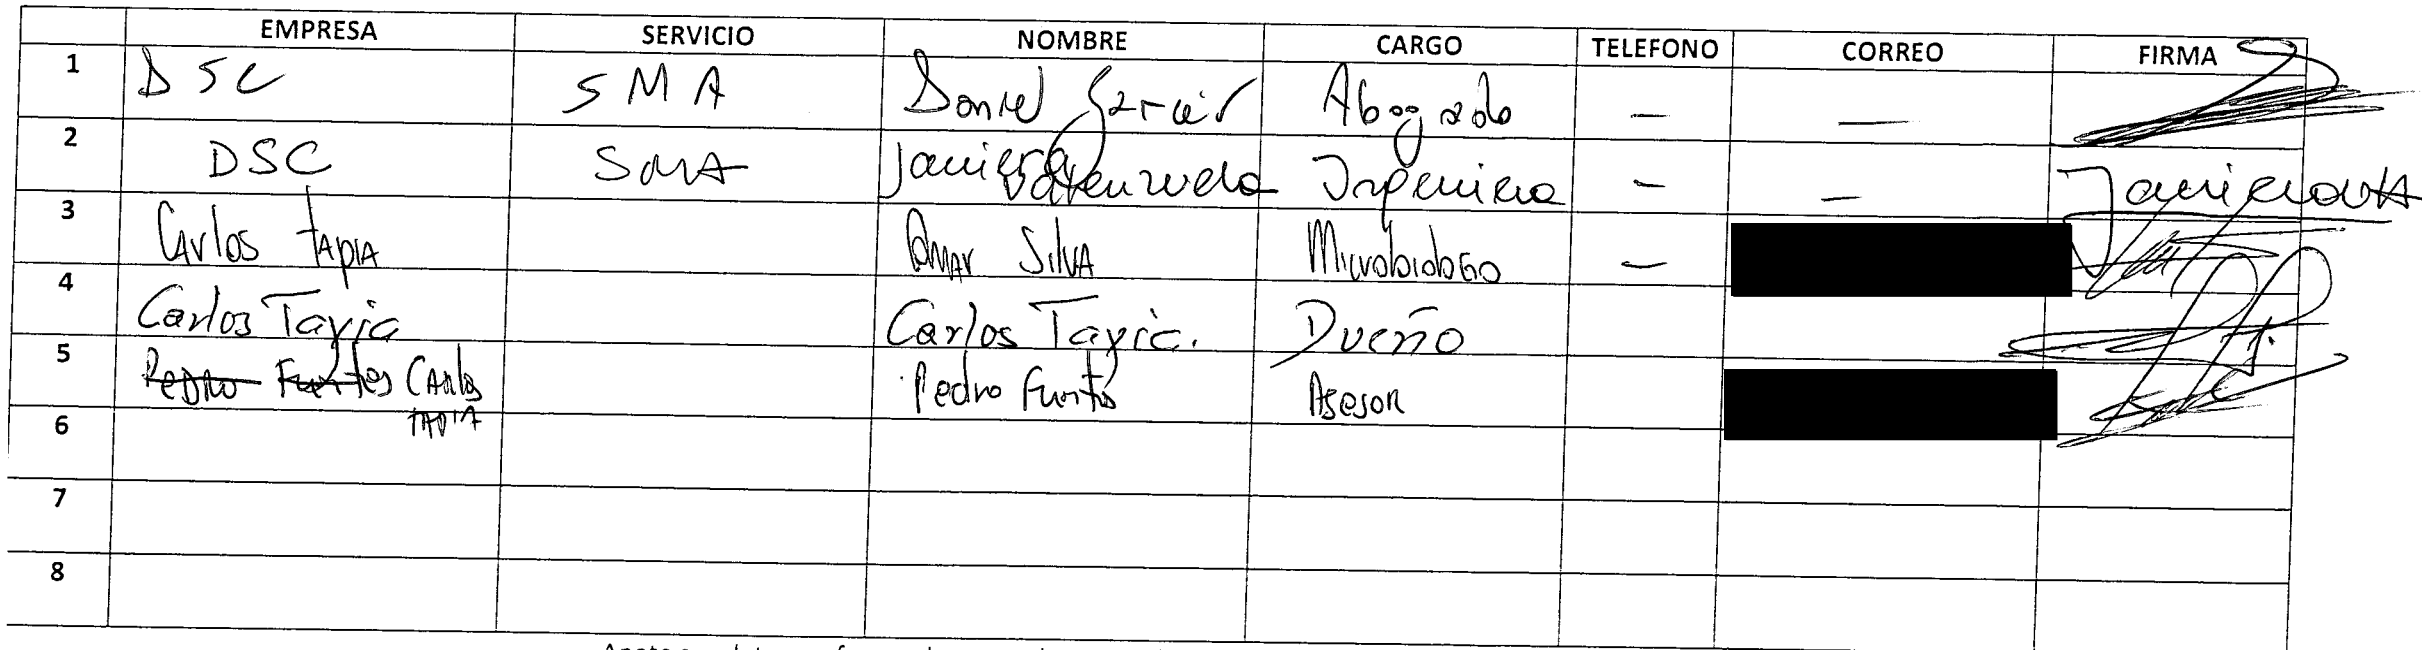 EMPRESA SERVICIO NOMBRE CARGO TELEFONO CORREO FIRMA
1 DSC SMA Daniel Garcés Abogado — —
2 DSC SMA Javiera Valenzuela Ingeniera — —
3 Carlos TAPIA Omar SilVA Microbiologo —
4 Carlos Tapia Carlos Tapia. Dueño
5 Pedro Fuentes Carlos Pedro Fuentes Asesor
TAPIA
6
7
8